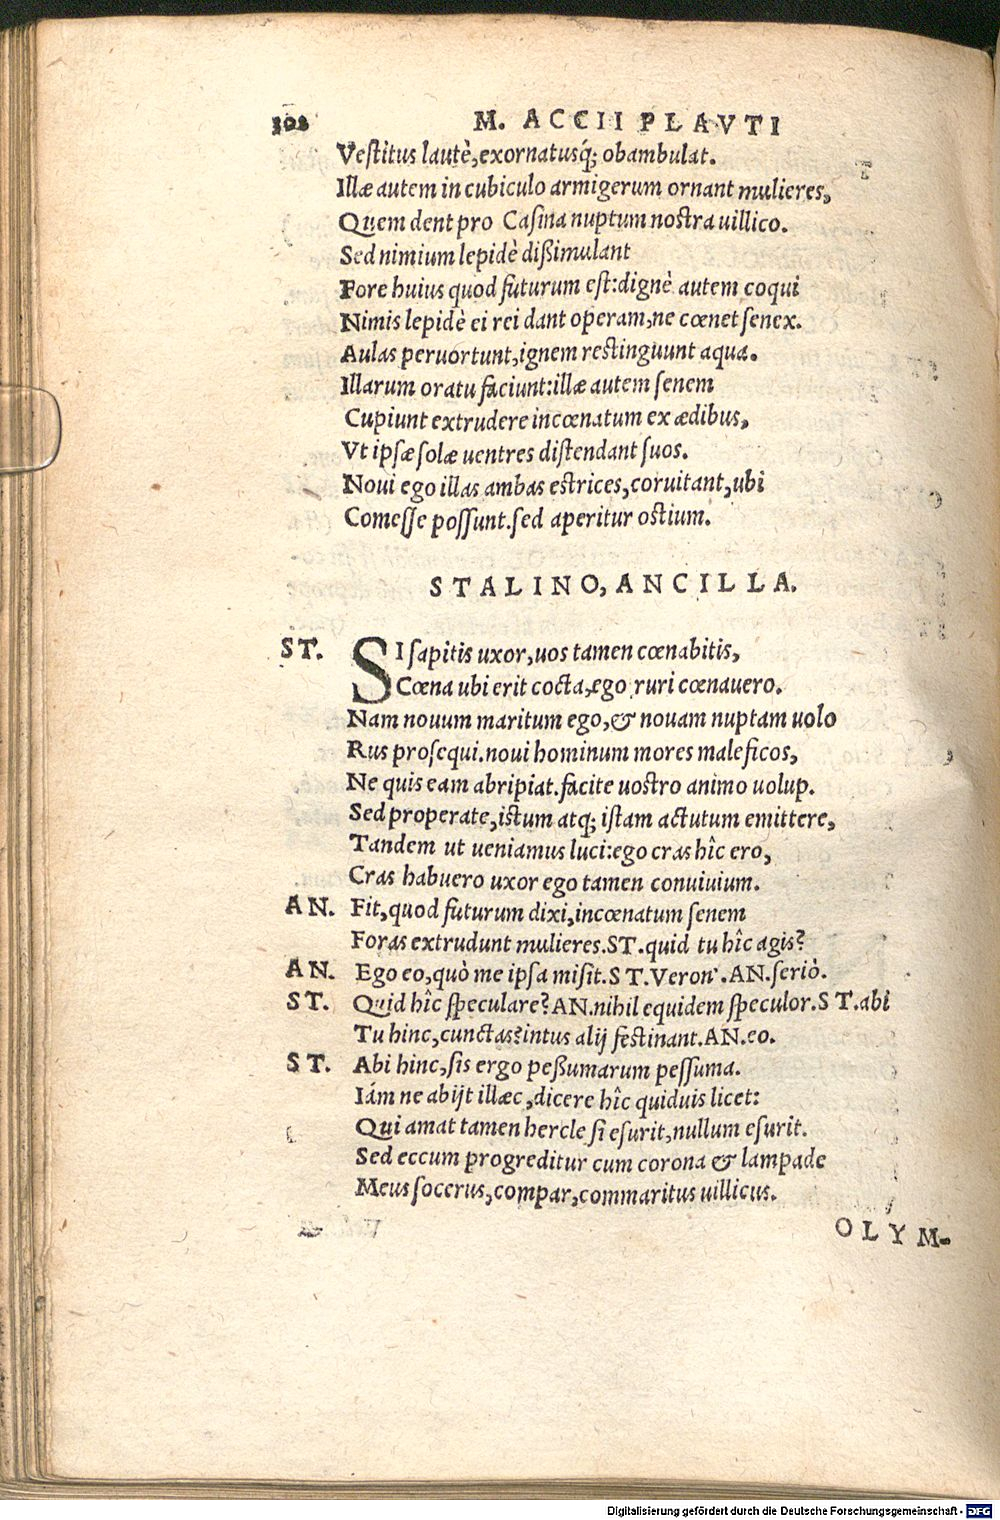 302 M. ACCII PLAVTI
Vestitus lautè, exornatusq́; obambulat.
Illæ autem in cubiculo armigerum ornant mulieres,
Quem dent pro Casina nuptum nostra uillico.
Sed nimium lepidè dißimulant
Fore huius quod futurum est: dignè autem coqui
Nimis lepidè ei rei dant operam, ne cœnet senex.
Aulas peruortunt, ignem restinguunt aqua.
Illarum oratu faciunt: illæ autem senem
Cupiunt extrudere incœnatum ex ædibus,
Vt ipsæ solæ uentres distendant suos.
Noui ego illas ambas estrices, coruitant, ubi
Comesse possunt. sed aperitur ostium.
STALINO, ANCILLA.
ST. SI sapitis uxor, uos tamen cœnabitis,
Cœna ubi erit cocta, ego ruri cœnauero.
Nam nouum maritum ego, & nouam nuptam uolo
Rus prosequi. noui hominum mores maleficos,
Ne quis eam abripiat. facite uostro animo uolup.
Sed properate, istum atq; istam actutum emittere,
Tandem ut ueniamus luci: ego cras hîc ero,
Cras habuero uxor ego tamen conuiuium.
AN. Fit, quod futurum dixi, incœnatum senem
Foras extrudunt mulieres. ST. quid tu hîc agis?
AN. Ego eo, quò me ipsa misit. ST. Veron'. AN. seriò.
ST. Quid hîc speculare? AN. nihil equidem speculor. ST. abi
Tu hinc, cunctas? intus alij festinant. AN. eo.
ST. Abi hinc, sis ergo peßumarum pessuma.
Iám ne abijt illæc, dicere hîc quiduis licet:
Qui amat tamen hercle si esurit, nullum esurit.
Sed eccum progreditur cum corona & lampade
Meus socerus, compar, commaritus uillicus.
OLYM-
Digitalisierung gefördert durch die Deutsche Forschungsgemeinschaft - DFG